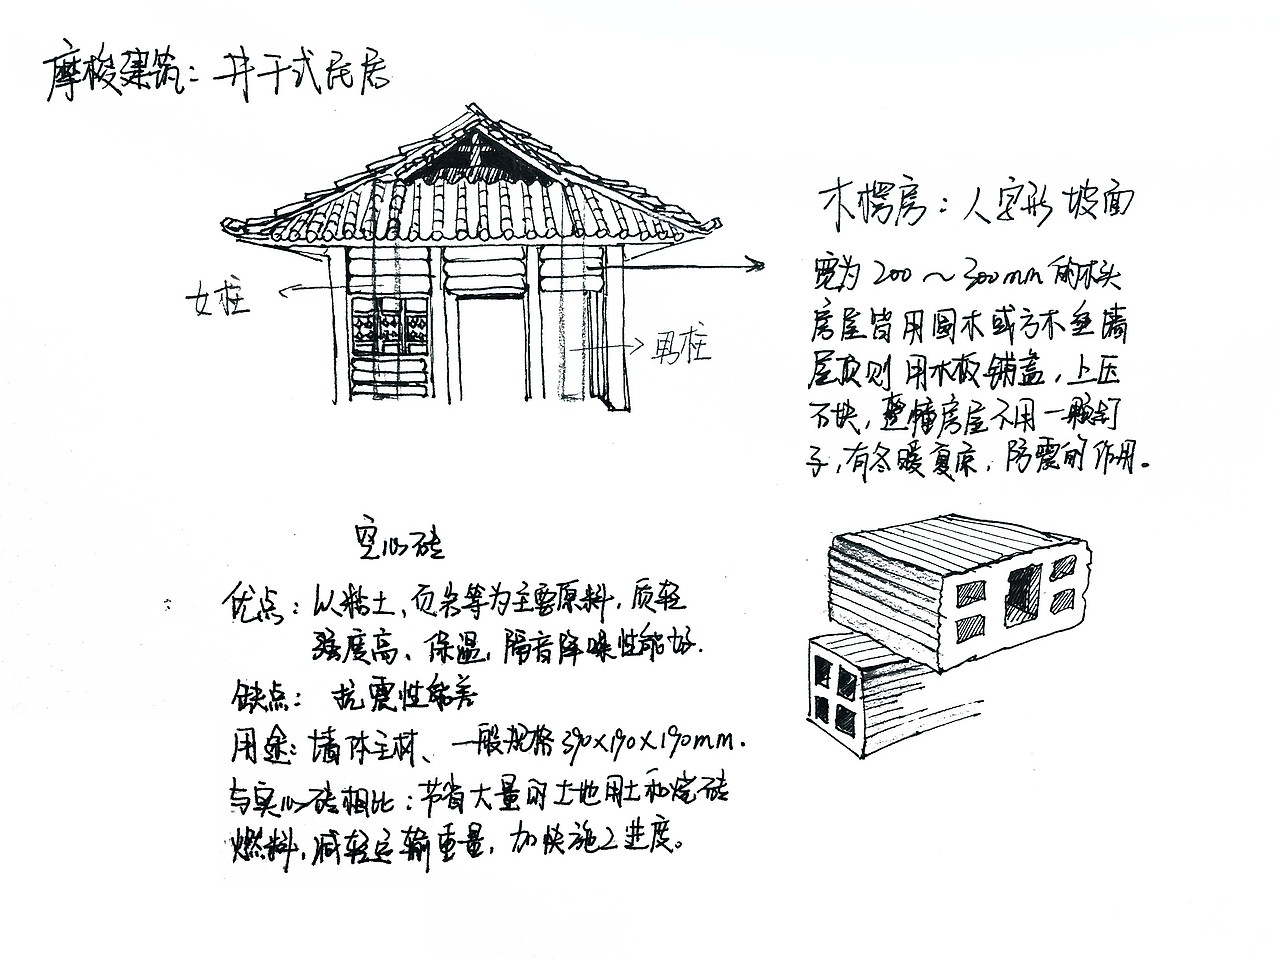 摩梭建筑：井干式民居
木楞房：人字形坡面
女柱
男柱
宽为200～300mm的木头
房屋皆用圆木或方木垒墙
屋顶则用木板铺盖，上压
石块，整幢房屋不用一颗钉
子，有冬暖夏凉，防震的作用。
空心砖
优点：以粘土、页岩等为主要原料，质轻
强度高、保温，隔音降噪性能好.
缺点：抗震性能差
用途：墙体主材、一般规格390×190×190mm.
与实心砖相比：节省大量的土地用土和烧砖
燃料，减轻运输重量，加快施工进度。